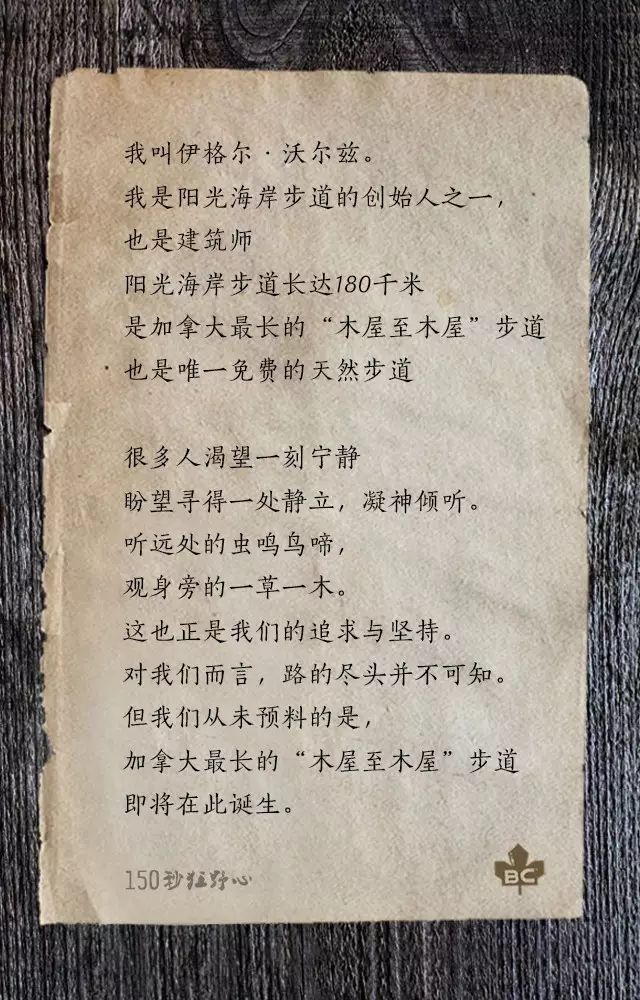 我叫伊格尔·沃尔兹。
我是阳光海岸步道的创始人之一，
也是建筑师
阳光海岸步道长达180千米
是加拿大最长的“木屋至木屋”步道
也是唯一免费的天然步道
很多人渴望一刻宁静
盼望寻得一处静立，凝神倾听。
听远处的虫鸣鸟啼，
观身旁的一草一木。
这也正是我们的追求与坚持。
对我们而言，路的尽头并不可知。
但我们从未预料的是，
加拿大最长的“木屋至木屋”步道
即将在此诞生。
150秒狂野心
BC